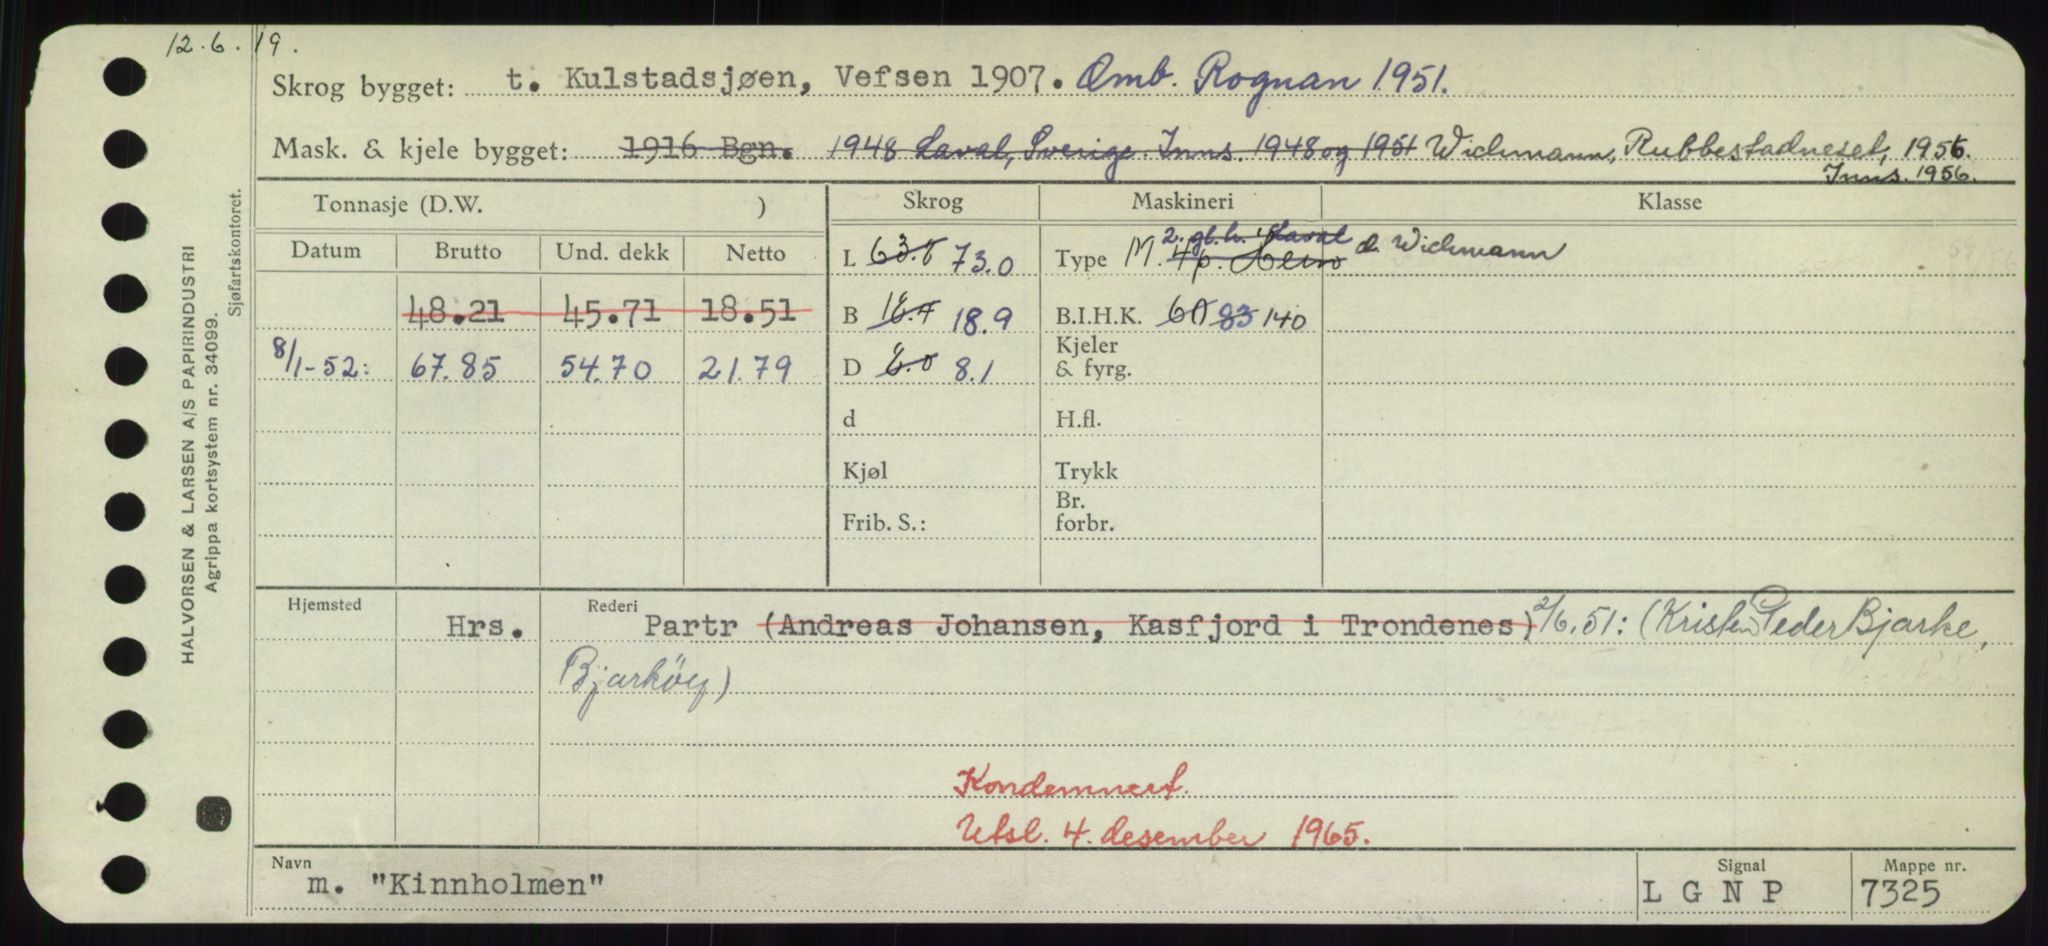 12.6.19.
Skrog bygget: t. Kulstadsjøen, Vefsen 1907. Omb. Rognan 1951.
Mask. & kjele bygget: 1916 Bgn. 1948 Laval, Sverige. Inns. 1948 og 1951 Wichmann, Rubbestadneset, 1956.
Inns. 1956.
Tonnasje (D.W. ) Skrog Maskineri Klasse
Datum Brutto Und. dekk Netto
L 63.8 73.0 Type M. 2. gl.h. Laval d. Wichmann
4p.
48.21 45.71 18.51 B 18.9 B.I.H.K. 60 83 140
8/1-52: 67.85 54.70 21.79 D 8.1 Kjeler & fyrg.
d H.fl.
Kjøl Trykk
Frib. S.: Br. forbr.
Hjemsted Rederi
Hrs. Partr (Andreas Johansen, Kasfjord i Trondenes) 2/6.51: (Kristen Peder Bjarke,
Bjarköy)
Kondemnert.
Utsl. 4. desember 1965.
Navn Signal Mappe nr.
m. "Kinnholmen" L G N P 7325
HALVORSEN & LARSEN A/S PAPIRINDUSTRI
Agrippa kortsystem nr. 34099.
Sjøfartskontoret.